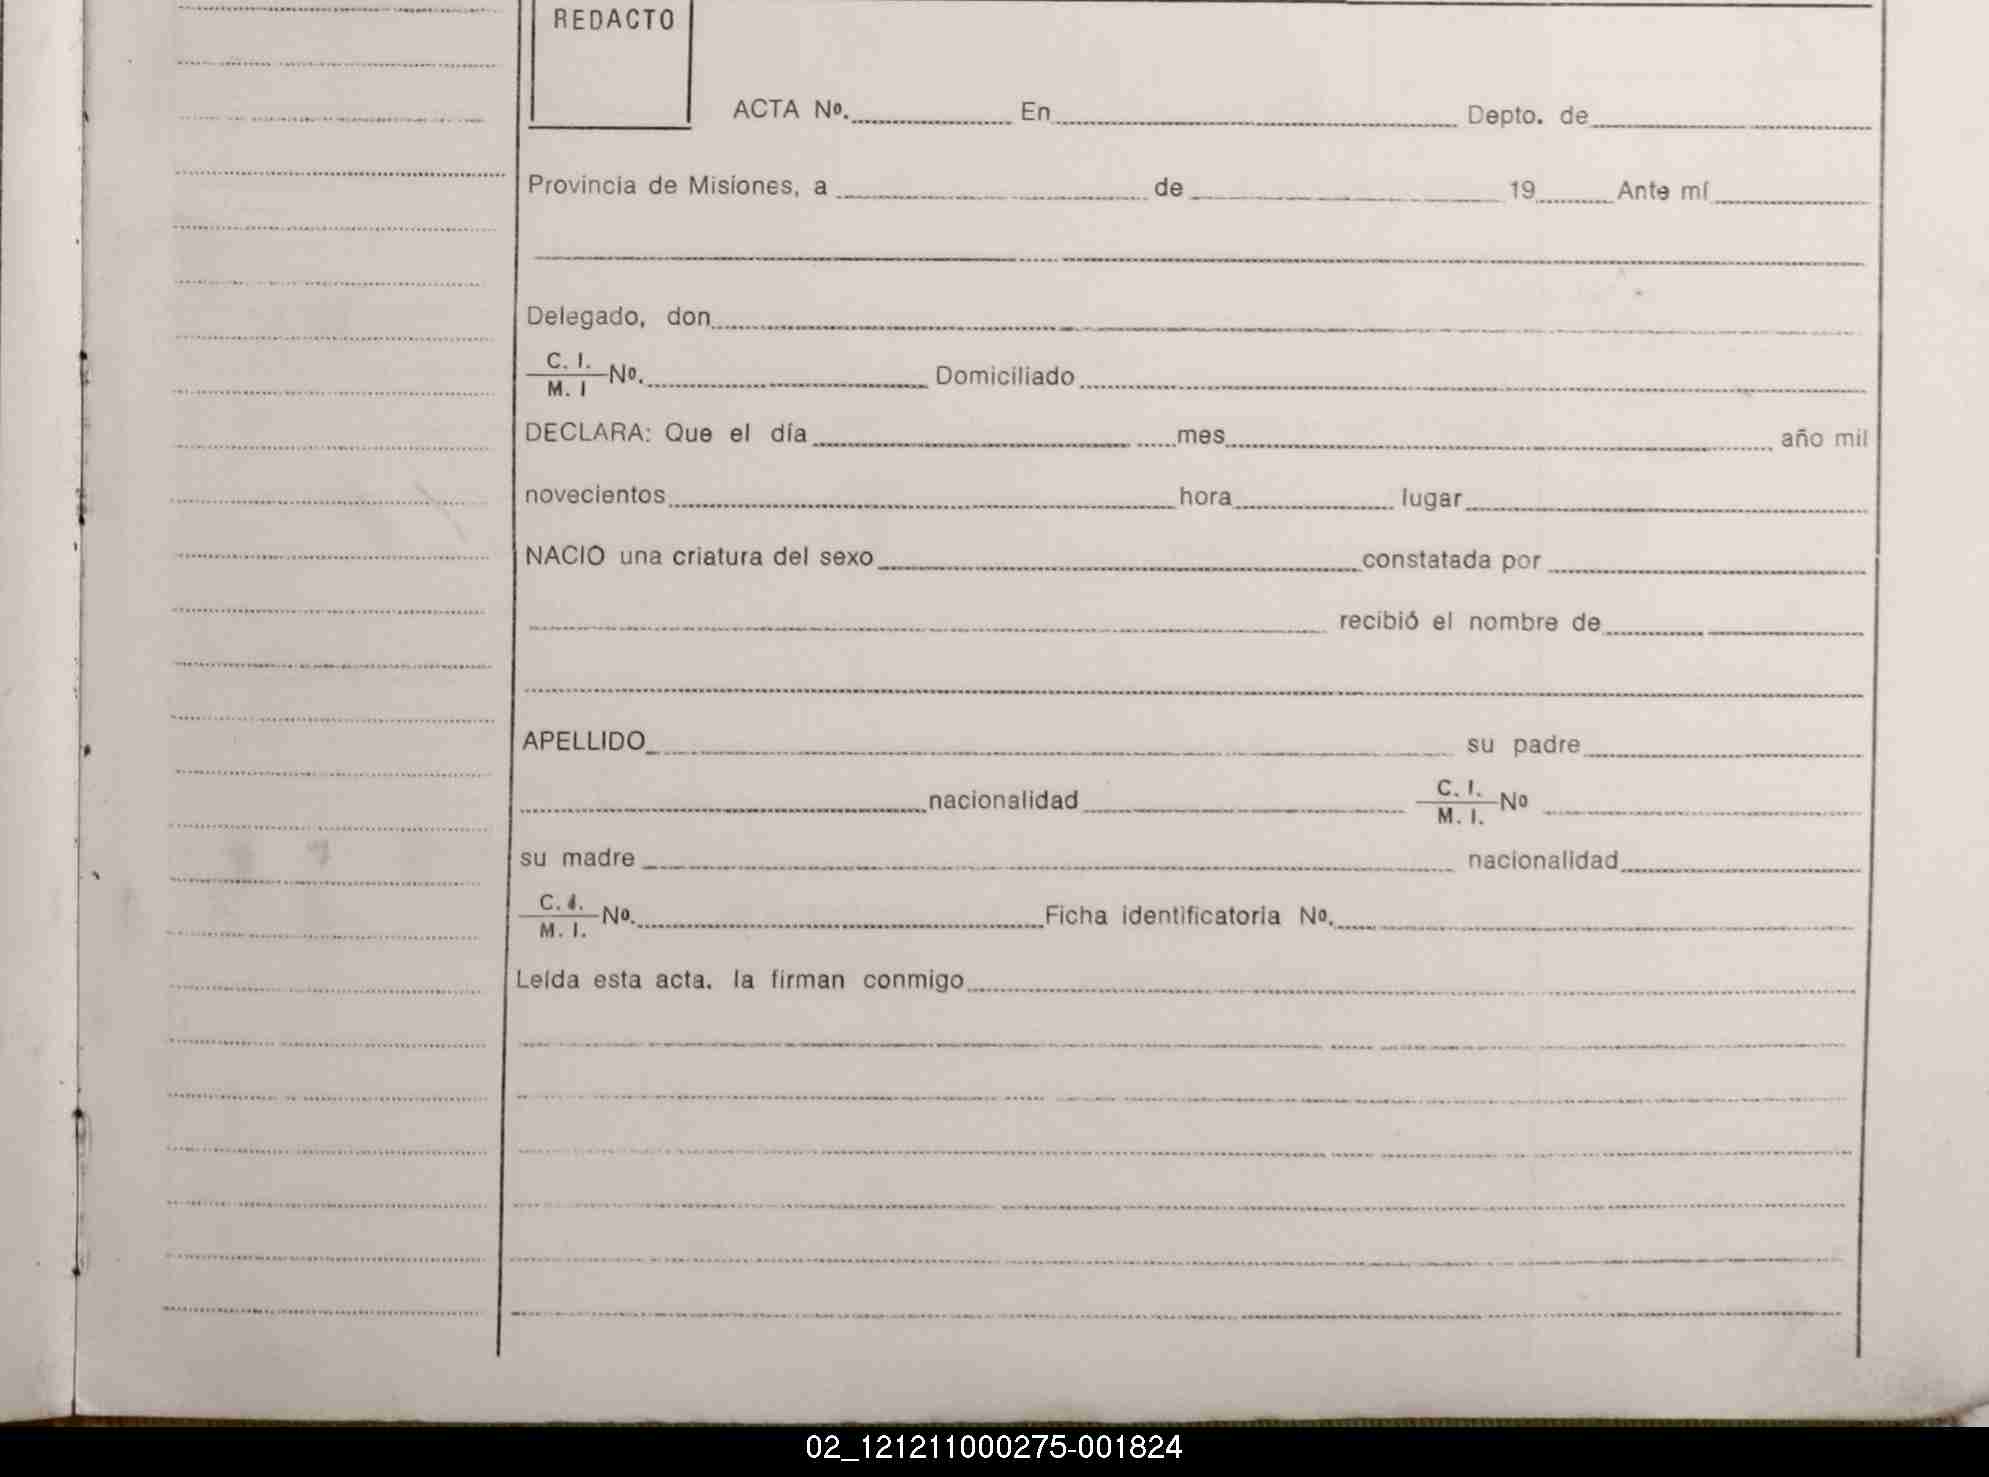 REDACTO
ACTA Nº. En Depto. de
Provincia de Misiones, a de 19 Ante mí
Delegado, don
C. I.
M. I Nº. Domiciliado
DECLARA: Que el día mes año mil
novecientos hora lugar
NACIO una criatura del sexo constatada por
recibió el nombre de
APELLIDO su padre
nacionalidad C. I.
M. I. Nº
su madre nacionalidad
C. I.
M. I. Nº. Ficha identificatoria Nº.
Leída esta acta. la firman conmigo
02_121211000275-001824